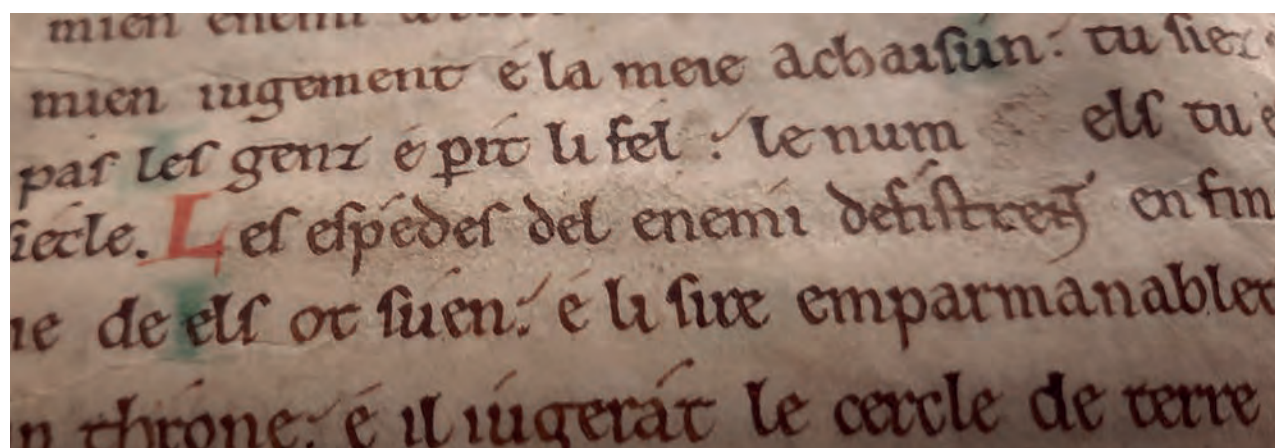 mien enemi
mien iugement é la meie achaisun: tu siez
pas les genz é pit li fel: le num els tu e
siecle. Les espédes del enemi defistrent en fin
ne de els ot suen: é li sire emparmanablet
n thróne: é il iúgerát le cercle de terre